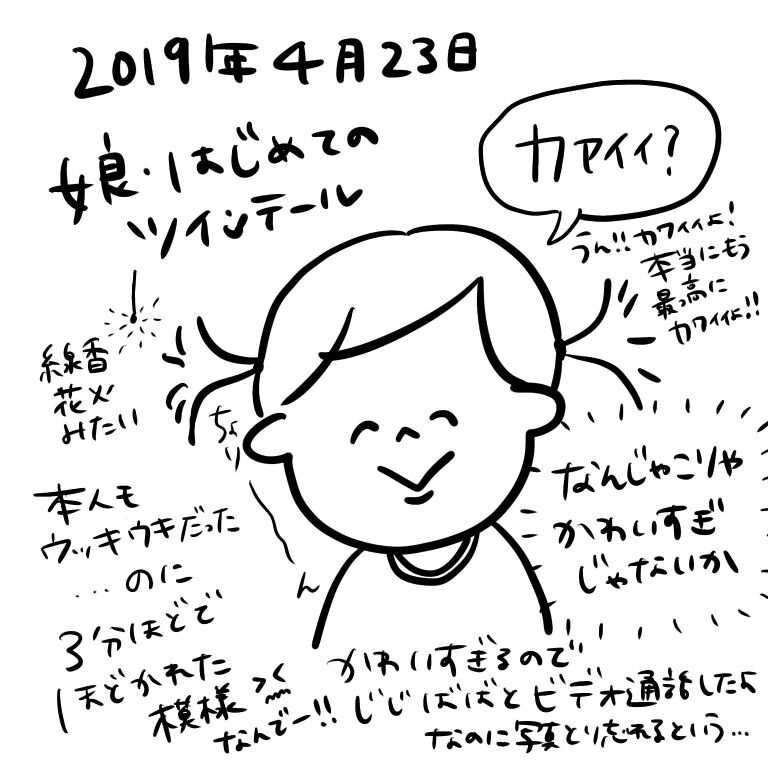 2019年4月23日
娘・はじめての
ツインテール
カアイイ?
うん!!カワイイよ!
本当にもう
最っ高に
カワイイよ!!
線香
花火
みたい
ちょり
ん
なんじゃこりゃ
かわいすぎ
じゃないか
本人も
ウッキウキだった
…のに
3分ほどで
ほどかれた
模様
なんでー!!
かわいすぎるので
じじばばとビデオ通話したよ
なのに写真とり忘れるという…